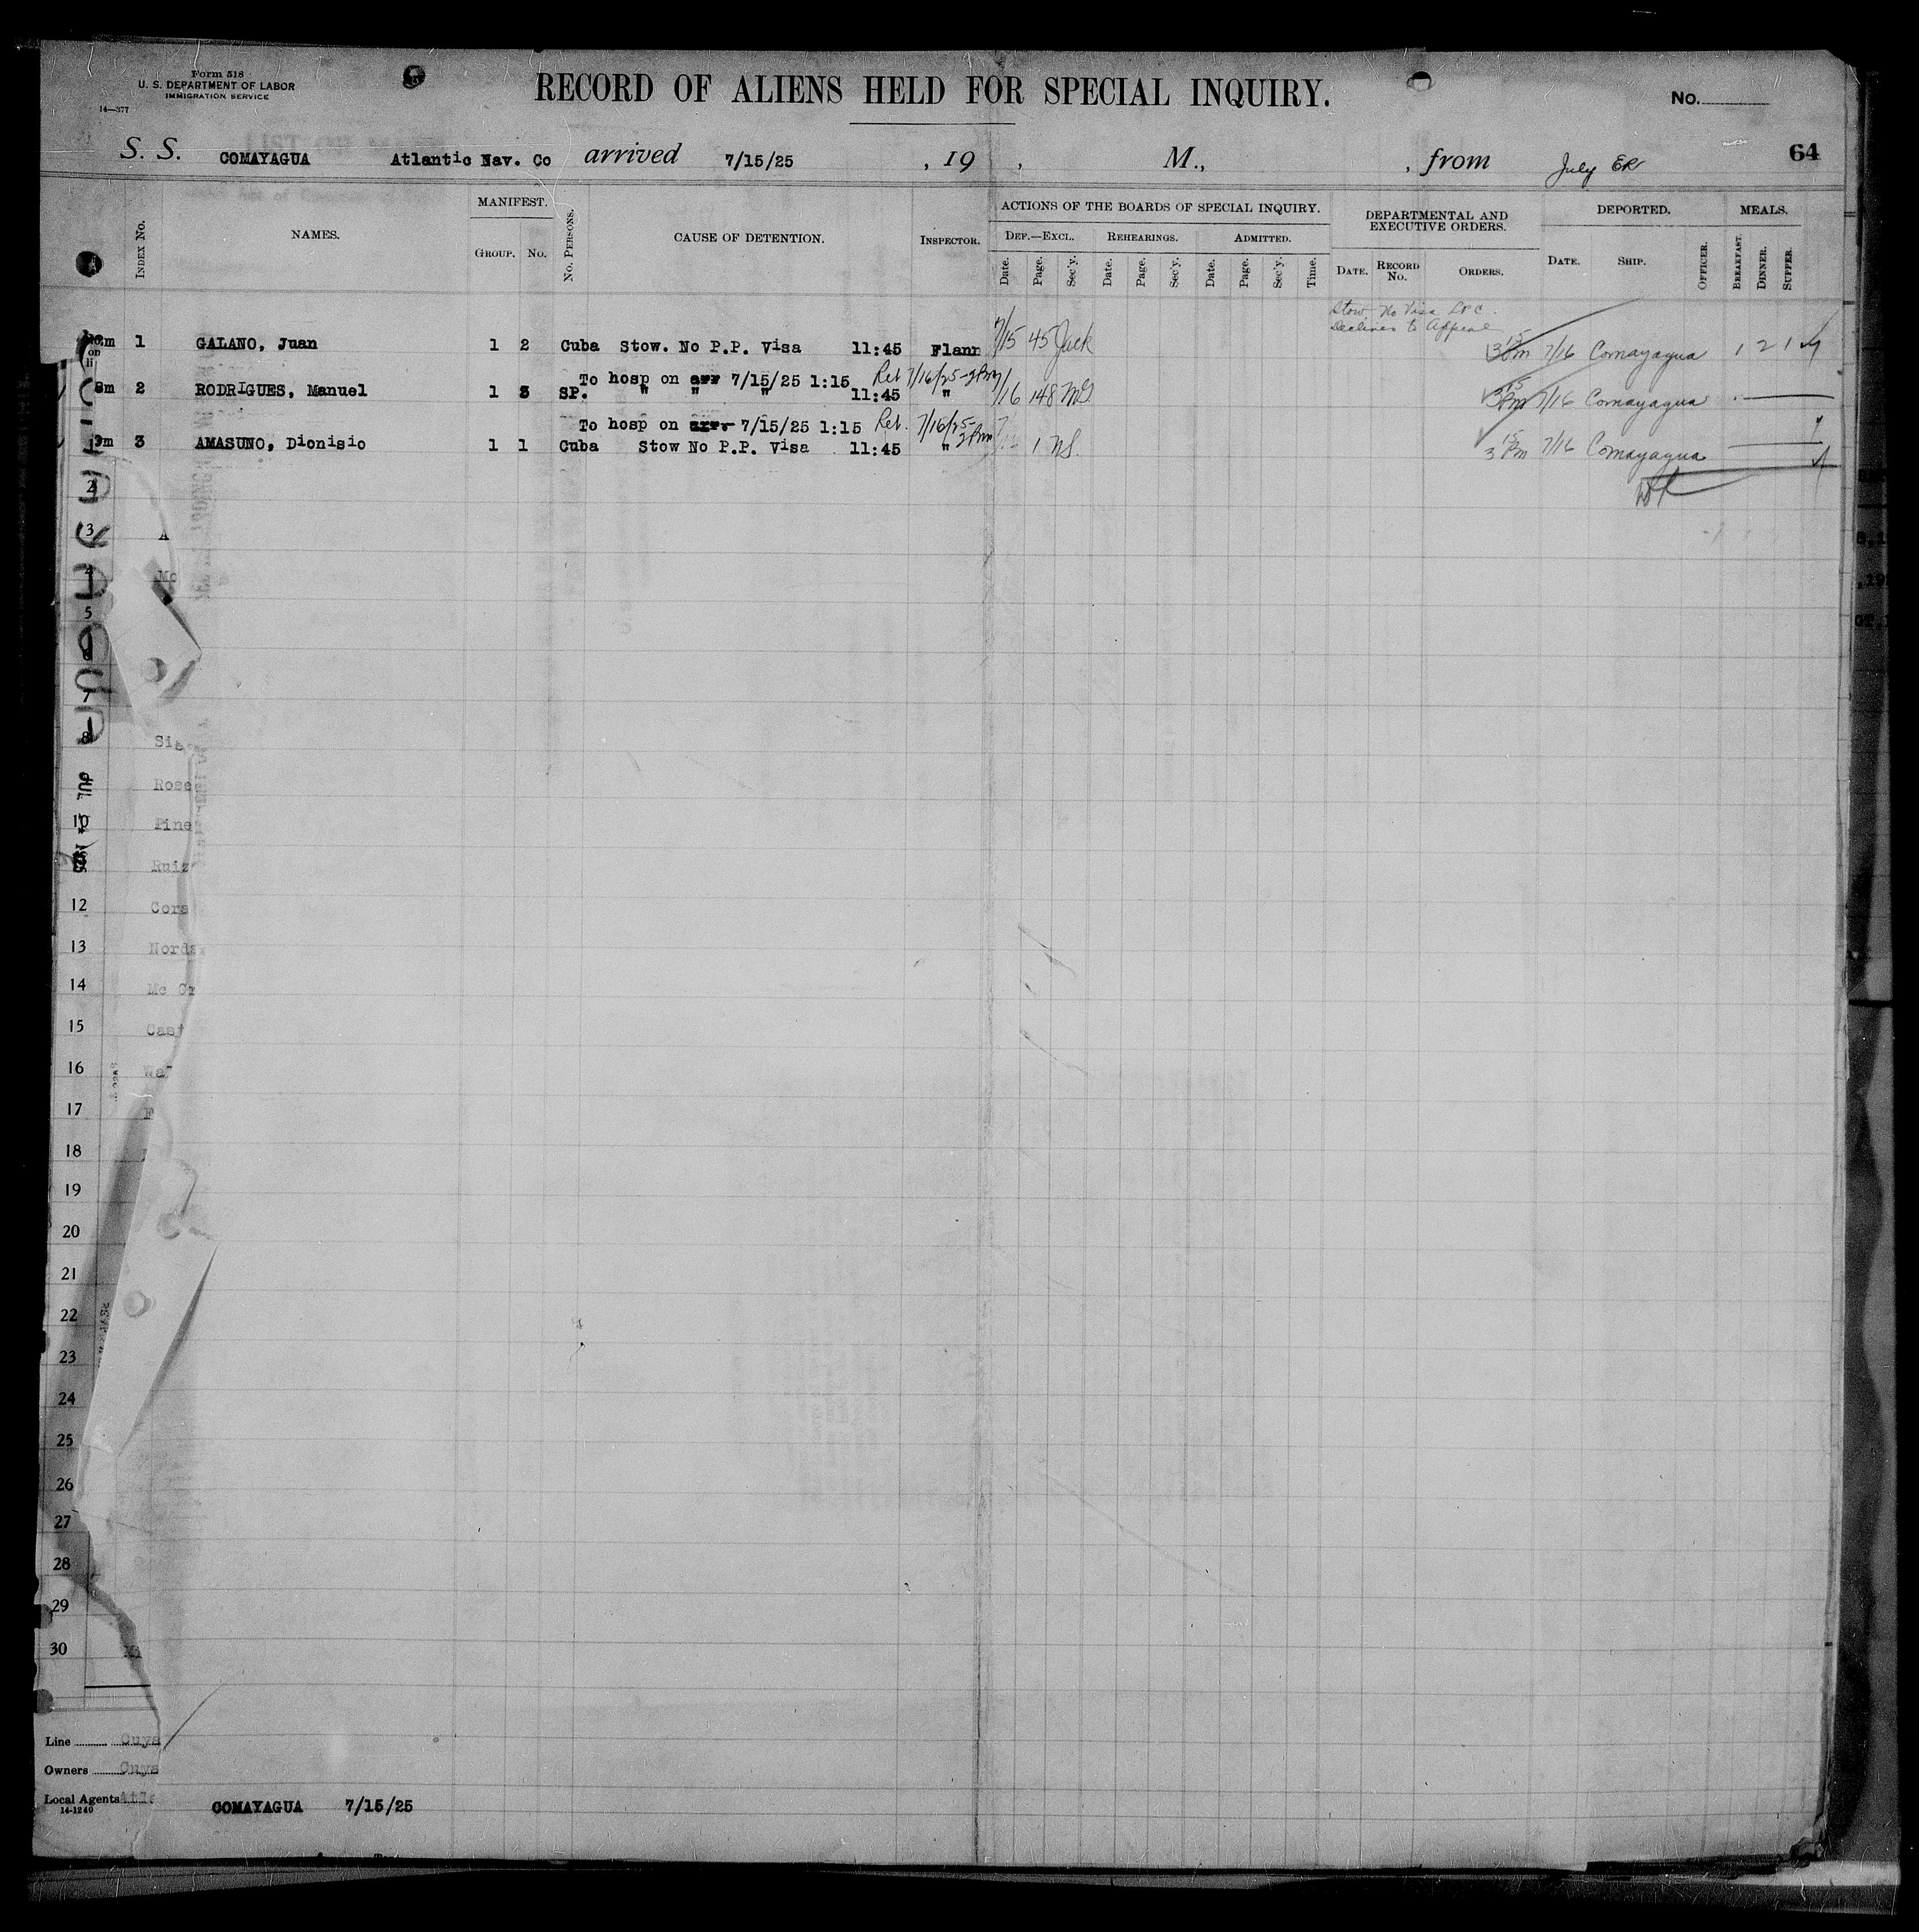 Form 518
U. S. DEPARTMENT OF LABOR
IMMIGRATION SERVICE
14—377
RECORD OF ALIENS HELD FOR SPECIAL INQUIRY.
No.
S. S. COMAYAGUA Atlantic Nav. Co arrived 7/15/25 , 19 , M., , from July ER
64
INDEX NO. NAMES. MANIFEST. GROUP. NO. NO. PERSONS. CAUSE OF DETENTION. INSPECTOR.
ACTIONS OF THE BOARDS OF SPECIAL INQUIRY. DEF.—EXCL. REHEARINGS. ADMITTED.
Date. Page. Sec'y. Date. Page. Sec'y. Date. Page. Sec'y. Time.
DEPARTMENTAL AND EXECUTIVE ORDERS. DATE. RECORD NO. ORDERS.
DEPORTED. DATE. SHIP. OFFICER. MEALS. BREAKFAST. DINNER. SUPPER.
Stow No Visa LPC
Declines to Appeal
1 GALANO, Juan 1 2 Cuba Stow. No P.P. Visa 11:45 Flann 7/15 45 Jack 7/16 Comayagua 1 2 1
To hosp on arr 7/15/25 1:15 Ret 7/16/25-2Pm
2 RODRIGUES, Manuel 1 3 SP. " " " 11:45 " 7/16 148 7/16 Comayagua
To hosp on arr 7/15/25 1:15 Ret. 7/16/25-2Pm
3 AMASUNO, Dionisio 1 1 Cuba Stow No P.P. Visa 11:45 " 1 NS. 3 15 Pm 7/16 Comayagua
2
3 A
4 Mc
5
6
7
8
9 Rose
10 Pine
Ruiz
12 Cors
13 Nords
14 Mc Cr
15 Cast
16
17 F
18
19
20
21
22
23
24
25
26
27
28
29
30
Line Cuya
Owners Cuya
Local Agents Atla
14-1240
COMAYAGUA 7/15/25